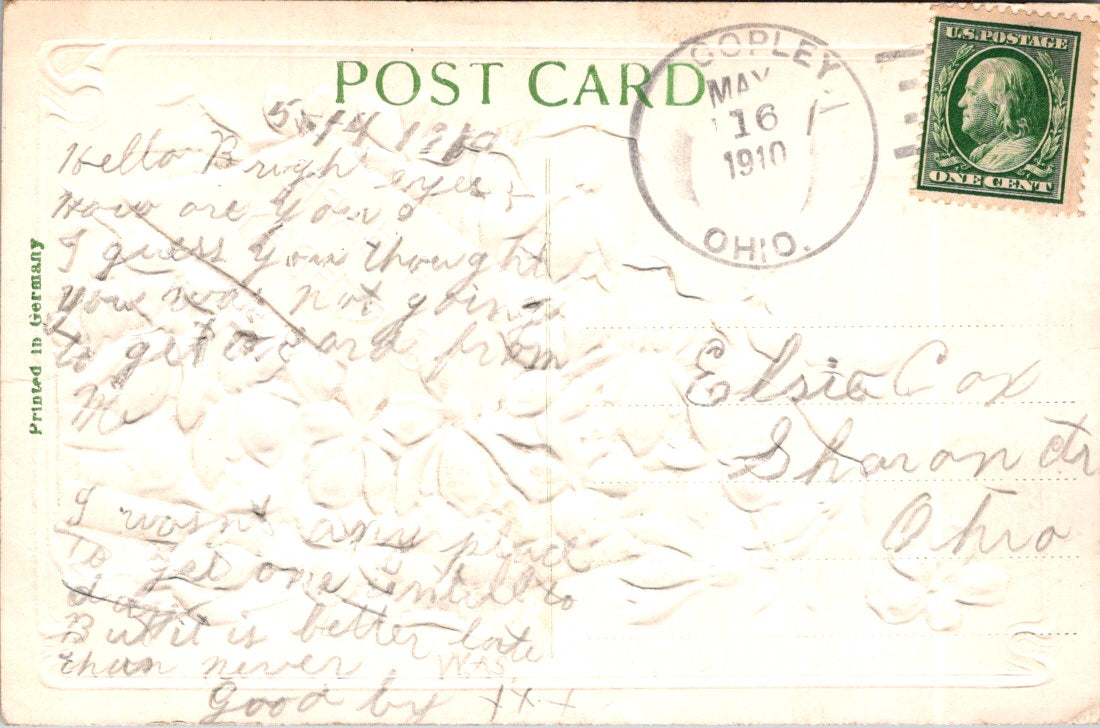 POST CARD
COPLEY
MAY
16
1910
OHIO.
U.S. POSTAGE
ONE CENT
Printed in Germany
5-14 1910
Hello Bright eyes
How are you
I guess you thought
you was not going
to get a card from
Me
I wasnt any place
to get one untill to
day
But it is better late
than never
Good by x x x
W.A.S.
Elsie Cox
Sharon Ctr
Ohio